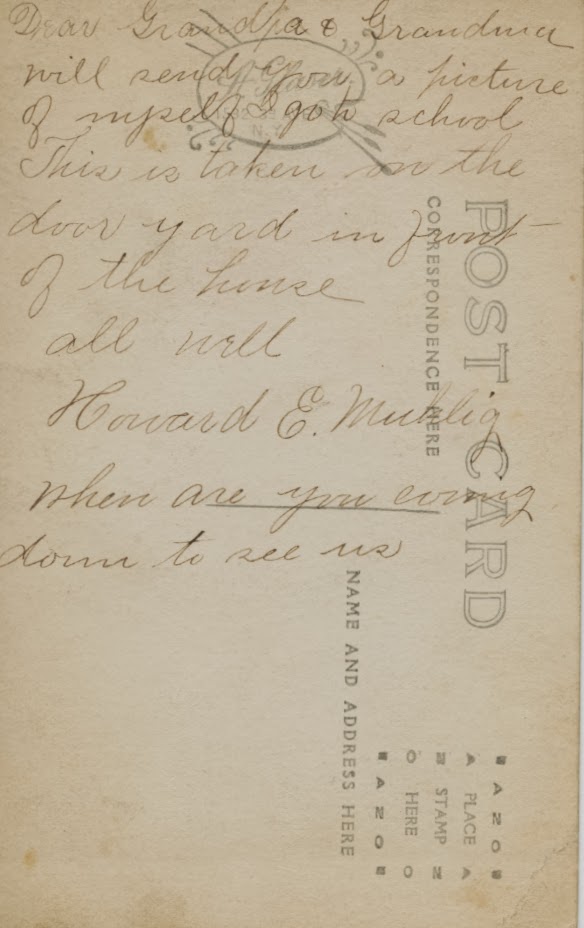 Dear Grandpa & Grandma
will send you a picture
of myself I go to school
This is taken on the
door yard in front
of the house
all well
Howard E. Muhlig
when are you coming
down to see us
POST CARD
CORRESPONDENCE HERE
NAME AND ADDRESS HERE
PLACE
STAMP
HERE
AZO
AZO
N.Y.